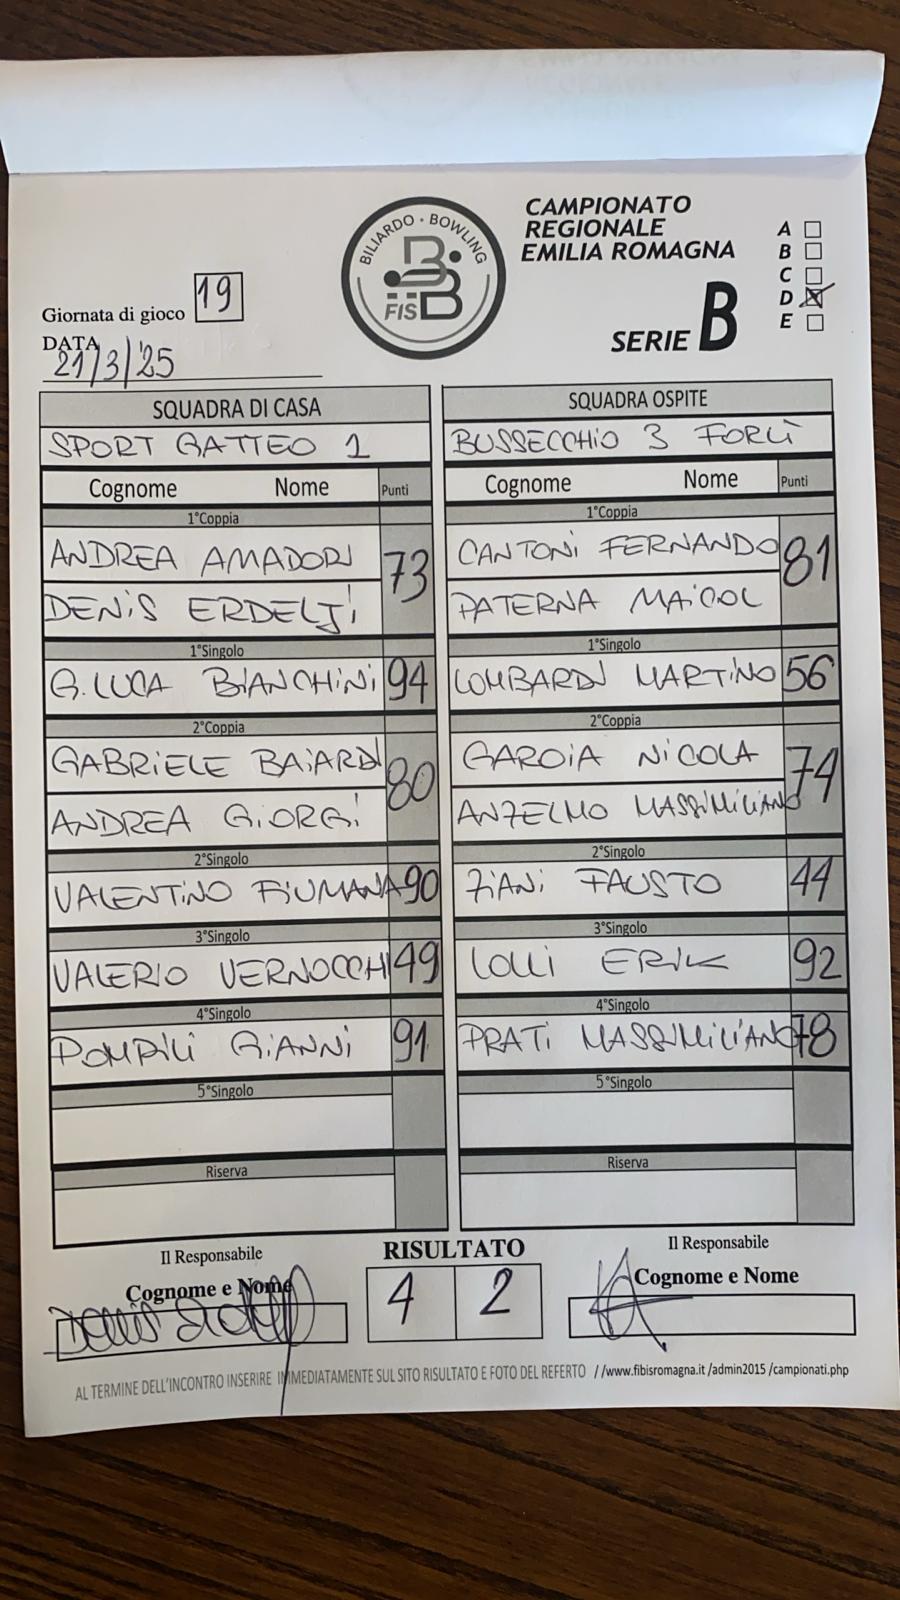 CAMPIONATO
REGIONALE
EMILIA ROMAGNA
SERIE B
A
B
C
D
E
BILIARDO • BOWLING
FISBB
Giornata di gioco 19
DATA
21/3/'25
SQUADRA DI CASA
SPORT GATTEO 1
Cognome Nome Punti
1°Coppia
ANDREA AMADORI 73
DENIS ERDELJI
1°Singolo
G.LUCA BIANCHINI 94
2°Coppia
GABRIELE BAIARDI 80
ANDREA GIORGI
2°Singolo
VALENTINO FIUMANA 90
3°Singolo
VALERIO VERNOCCHI 49
4°Singolo
POMPILI GIANNI 91
5°Singolo
Riserva
SQUADRA OSPITE
BUSSECCHIO 3 FORLÌ
Cognome Nome Punti
1°Coppia
CANTONI FERNANDO 81
PATERNA MAICOL
1°Singolo
LOMBARDI MARTINO 56
2°Coppia
GAROIA NICOLA 74
ANZELMO MASSIMILIANO
2°Singolo
ZIANI FAUSTO 44
3°Singolo
LOLLI ERIK 92
4°Singolo
PRATI MASSIMILIANO 78
5°Singolo
Riserva
Il Responsabile
Cognome e Nome
RISULTATO
4 2
Il Responsabile
Cognome e Nome
AL TERMINE DELL'INCONTRO INSERIRE IMMEDIATAMENTE SUL SITO RISULTATO E FOTO DEL REFERTO //www.fibisromagna.it /admin2015 /campionati.php